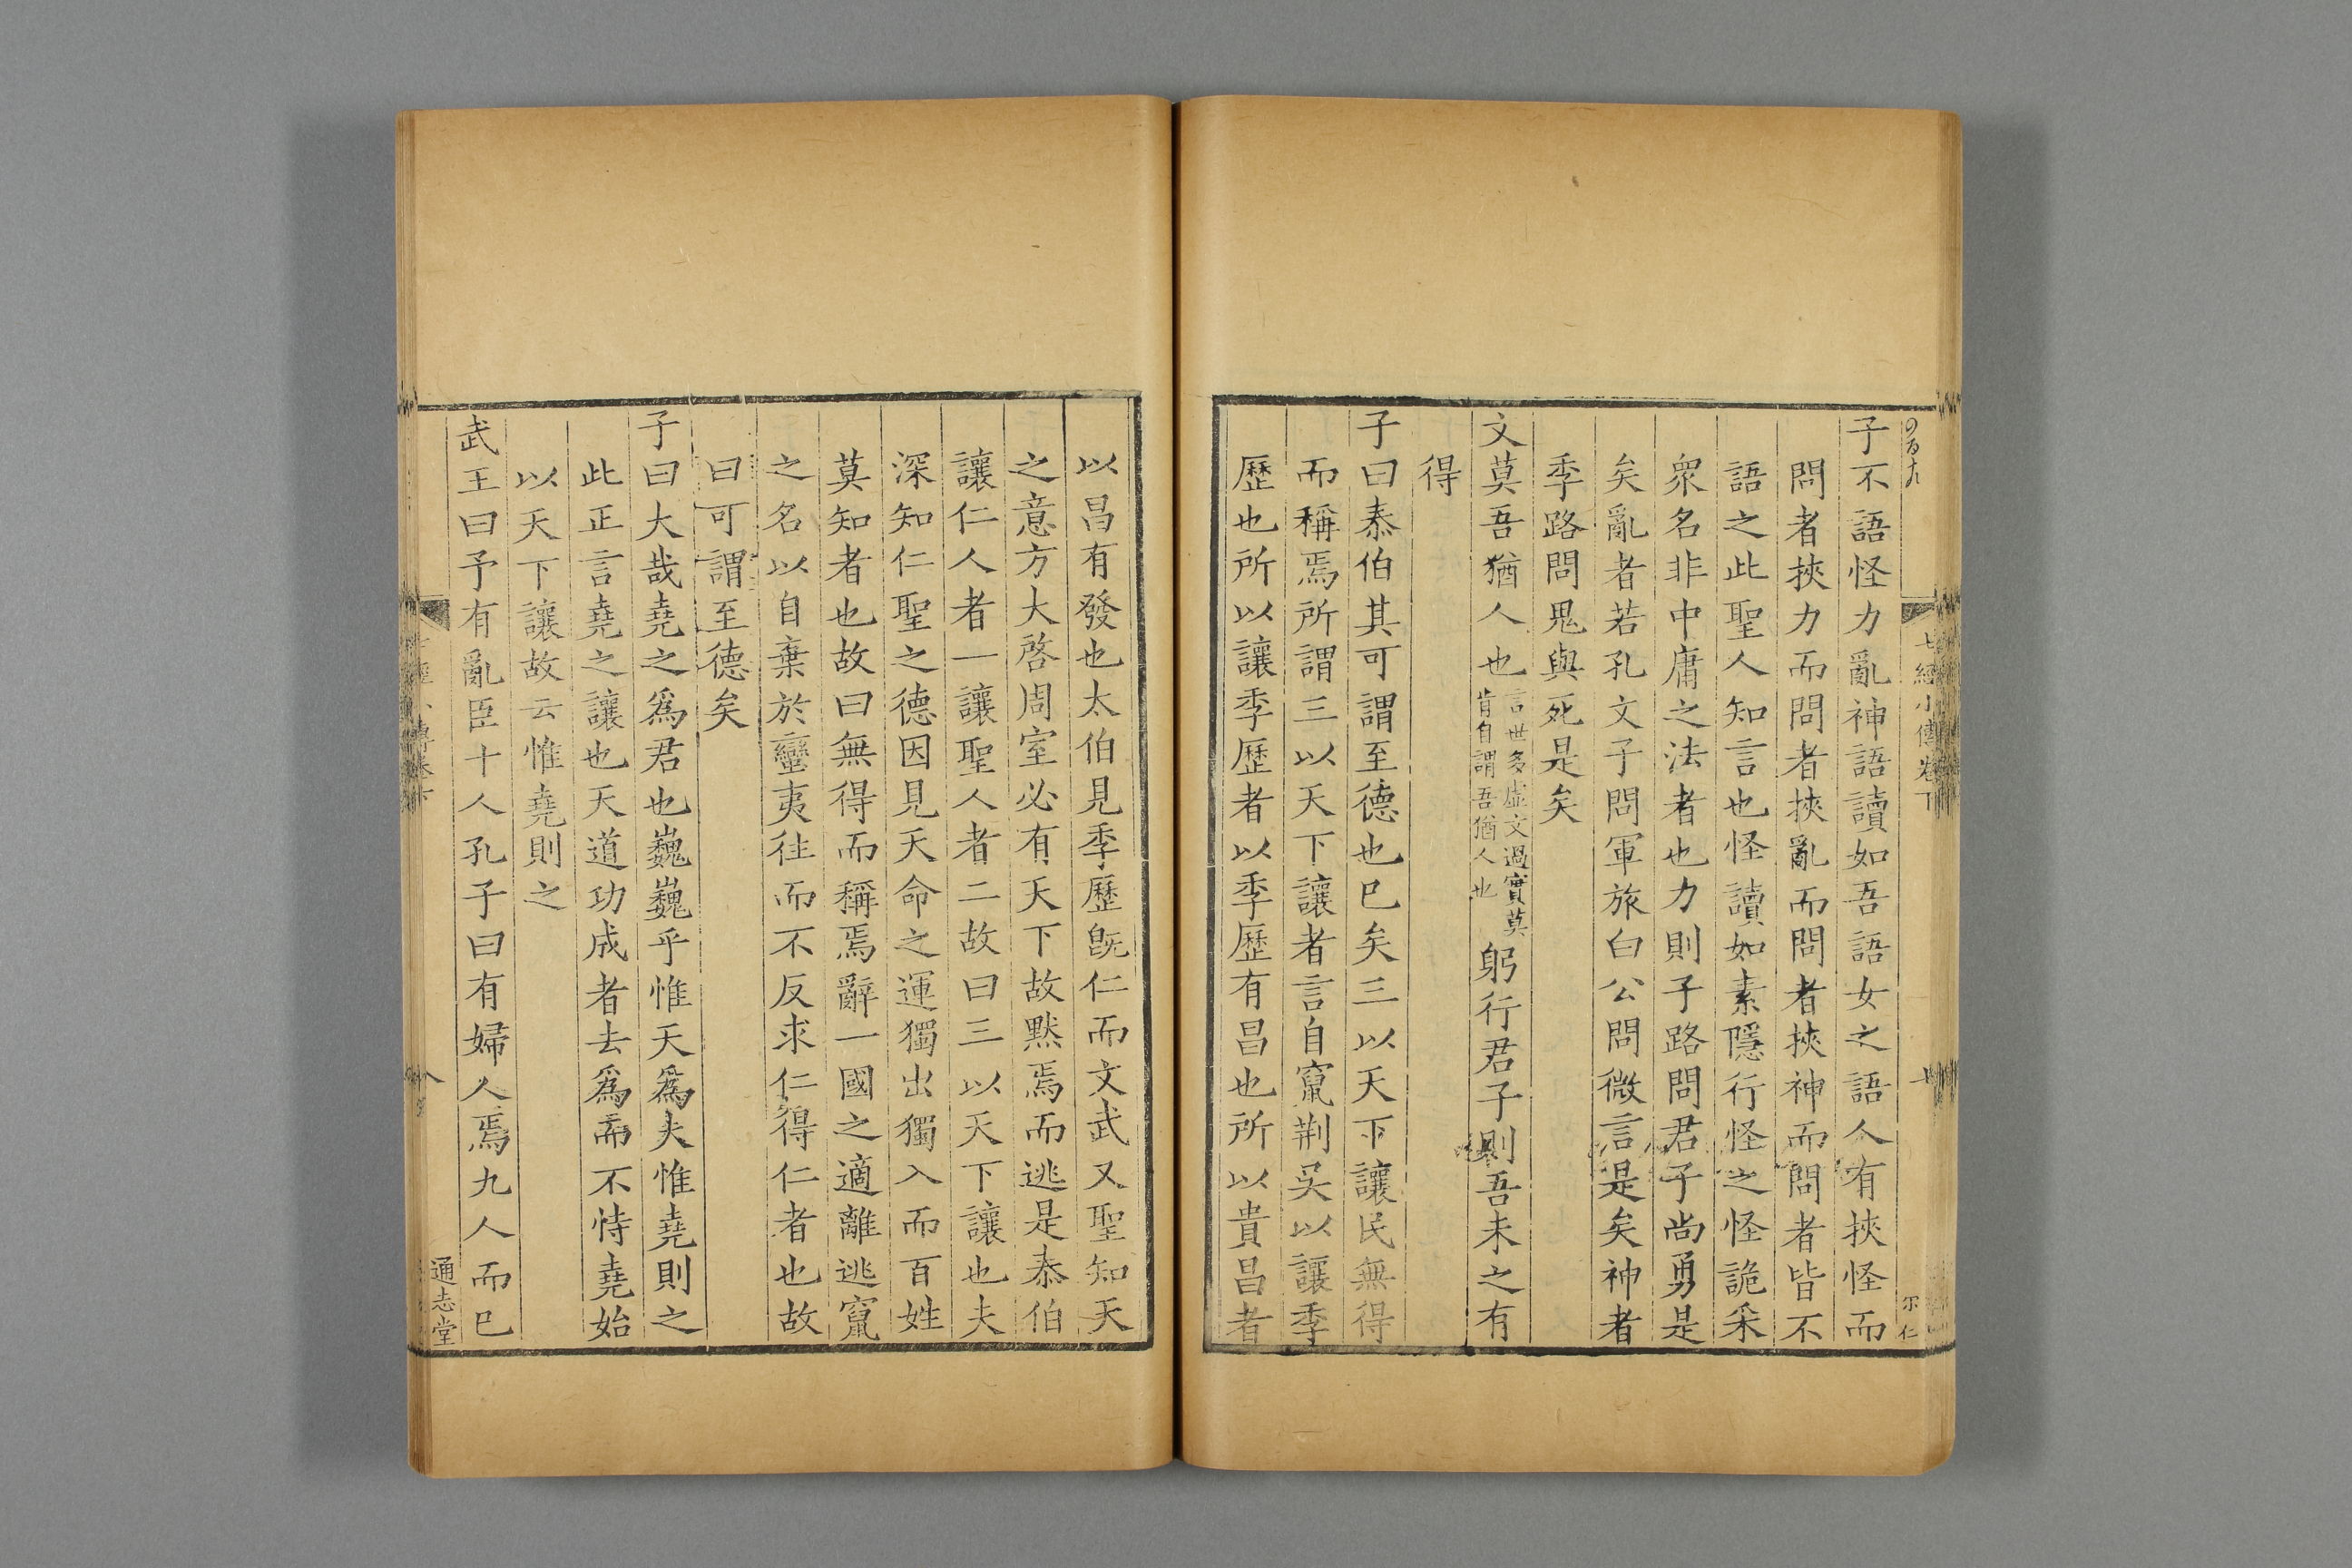 七經小傳卷下
子不語怪力亂神語讀如吾語女之語人有挾怪而
問者挾力而問者挾亂而問者挾神而問者皆不
語之此聖人知言也怪讀如素隱行怪之怪怪詭采
衆名非中庸之法者也力則子路問君子尚勇是
矣亂者若孔文子問軍旅白公問微言是矣神者
季路問鬼與死是矣
文莫吾猶人也言世多虛文過實莫肯自謂吾猶人也躬行君子則吾未之有
得
子曰泰伯其可謂至德也已矣三以天下讓民無得
而稱焉所謂三以天下讓者言自竄荆吴以讓季
歷也所以讓季歷者以季歷有昌也所以貴昌者
以昌有發也太伯見季歷旣仁而文武又聖知天
之意方大啓周室必有天下故默焉而逃是泰伯
讓仁人者一讓聖人者二故曰三以天下讓也夫
深知仁聖之德因見天命之運獨出獨入而百姓
莫知者也故曰無得而稱焉辭一國之適離逃竄
之名以自棄於蠻夷徃而不反求仁得仁者也故
曰可謂至德矣
子曰大哉堯之爲君也巍巍乎惟天爲大惟堯則之
此正言堯之讓也天道功成者去爲而不恃堯始
以天下讓故云惟堯則之
武王曰予有亂臣十人孔子曰有婦人焉九人而已
通志堂